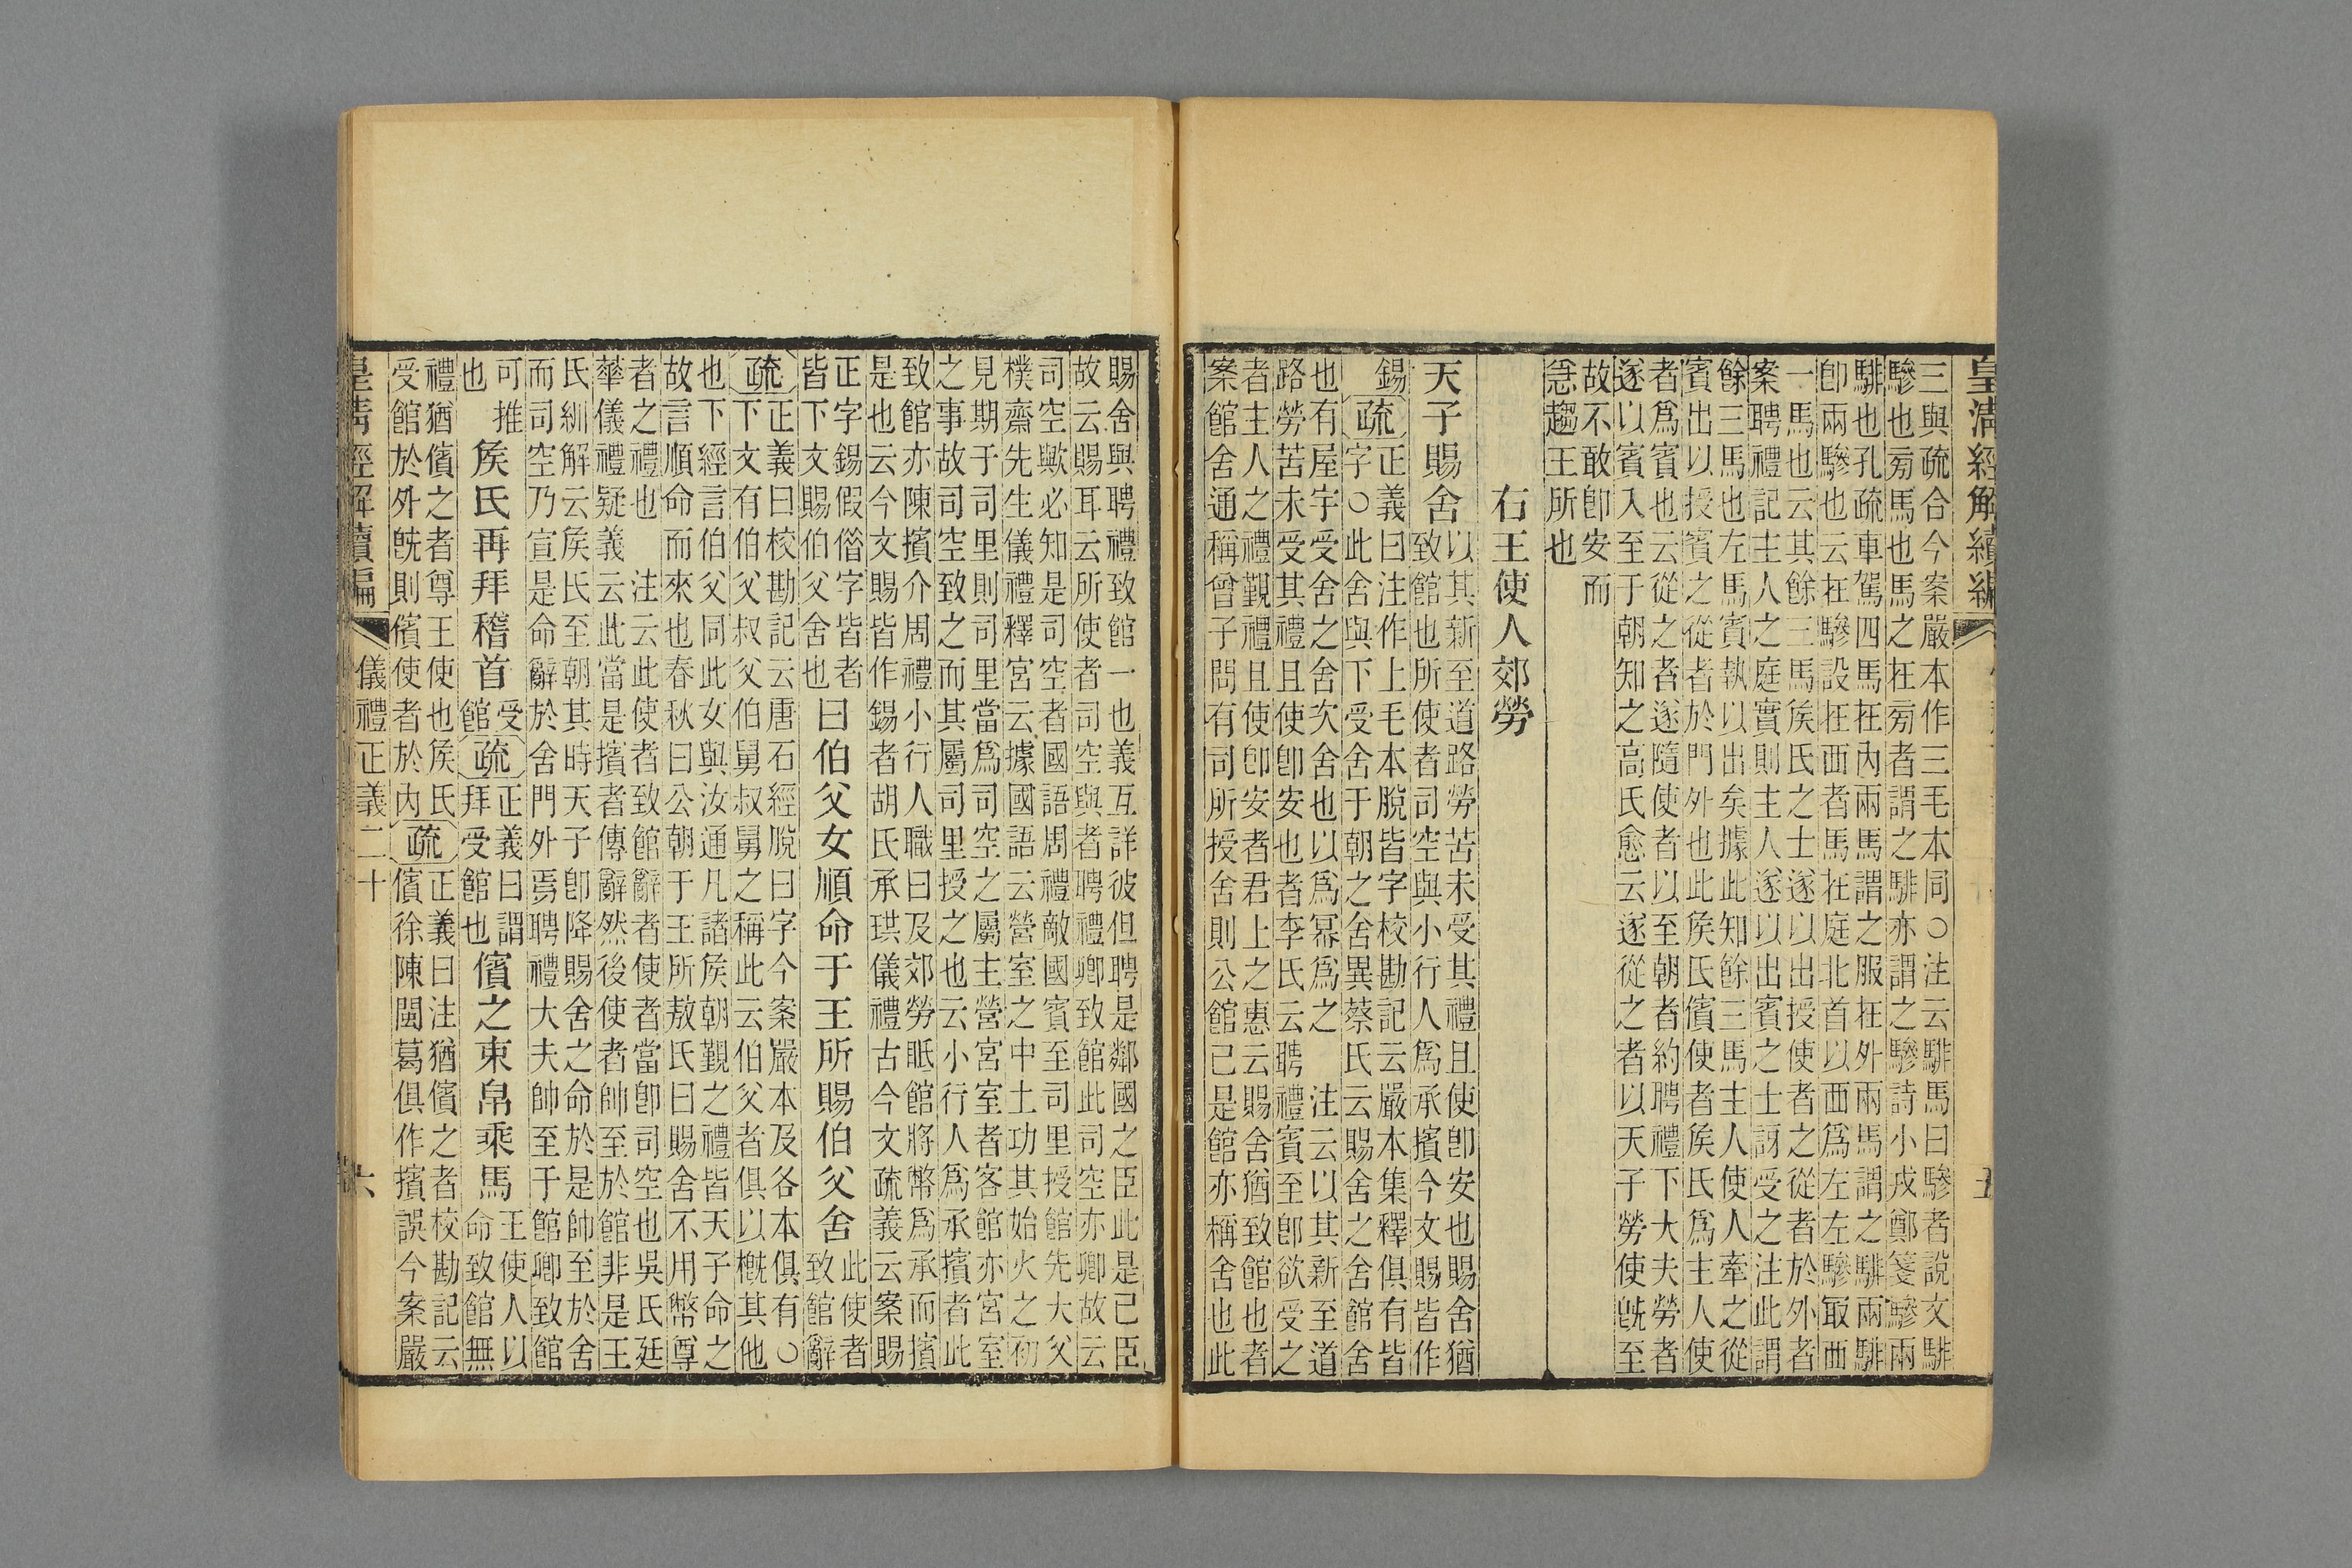 皇清經解續編 五
三與疏合今案嚴本作三毛本同○注云騑馬曰驂者說文騑
驂也㫄馬也馬之在㫄者謂之騑亦謂之驂詩小戎鄭箋驂兩
騑也孔疏車駕四馬在內兩馬謂之服在外兩馬謂之騑兩騑
卽兩驂也云在驂設在西者馬在庭北首以西爲左左驂最西
一馬也云其餘三馬矦氏之士遂以出授使者之從者於外者
案聘禮記主人之庭實則主人遂以出賓之士訝受之注此謂
餘三馬也左馬賓執以出矣據此知餘三馬主人使人牽之從
賓出以授賓之從者於門外也此矦氏儐使者矦氏爲主人使
者爲賓也云從之者遂隨使者以至朝者約聘禮下大夫勞者
遂以賓入至于朝知之高氏愈云遂從之者以天子勞使旣至
故不敢卽安而
急趨王所也
右王使人郊勞
天子賜舍
以其新至道路勞苦未受其禮且使卽安也賜舍猶
致館也所使者司空與小行人爲承擯今文賜皆作
錫
疏
正義曰注作上毛本脫皆字校勘記云嚴本集釋俱有皆
字○此舍與下受舍于朝之舍異蔡氏云賜舍之舍館舍
也有屋宇受舍之舍次舍也以爲冪爲之 注云以其新至道
路勞苦未受其禮且使卽安也者李氏云聘禮賓至卽欲受之
者主人之禮覲禮且使卽安者君上之惠云賜舍猶致館也者
案館舍通稱曾子問有司所授舍則公館已是館亦稱舍也此
賜舍與聘禮致館一也義互詳彼但聘是鄰國之臣此是已臣
故云賜耳云所使者司空與者聘禮卿致館此司空亦卿故云
司空歟必知是司空者國語周禮敵國賓至司里授館先大父
樸齋先生儀禮釋宮云據國語云營室之中土功其始火之初
見期于司里則司里當爲司空之屬主營宮室者客館亦宮室
之事故司空致之而其屬司里授之也云小行人爲承擯者此
致館亦陳擯介周禮小行人職曰及郊勞眂館將幣爲承而擯
是也云今文賜皆作錫者胡氏承珙儀禮古今文疏義云案賜
正字錫假偺字皆者
皆下文賜伯父舍也
曰伯父女順命于王所賜伯父舍
此使者
致館辭
疏
正義曰校勘記云唐石經脫曰字今案嚴本及各本俱有○
下文有伯父叔父伯舅叔舅之稱此云伯父者俱以槪其他
也下經言伯父同此女與汝通凡諸矦朝覲之禮皆天子命之
故言順命而來也春秋曰公朝于王所敖氏曰賜舍不用幣尊
者之禮也 注云此使者致館辭者使者當卽司空也吳氏廷
華儀禮疑義云此當是擯者傳辭然後使者帥至於館非是王
氏紃解云矦氏至朝其時天子卽降賜舍之命於是帥至於舍
而司空乃宣是命辭於舍門外焉聘禮大夫帥至于館卿致館
可推
也
矦氏再拜稽首
受
館
疏
正義曰謂
拜受館也
儐之束帛乘馬
王使人以
命致館無
禮猶儐之者尊王使也矦氏
受館於外旣則儐使者於內
疏
正義曰注猶儐之者校勘記云
儐徐陳閩葛俱作擯誤今案嚴
皇清經解續編 儀禮正義二十 六